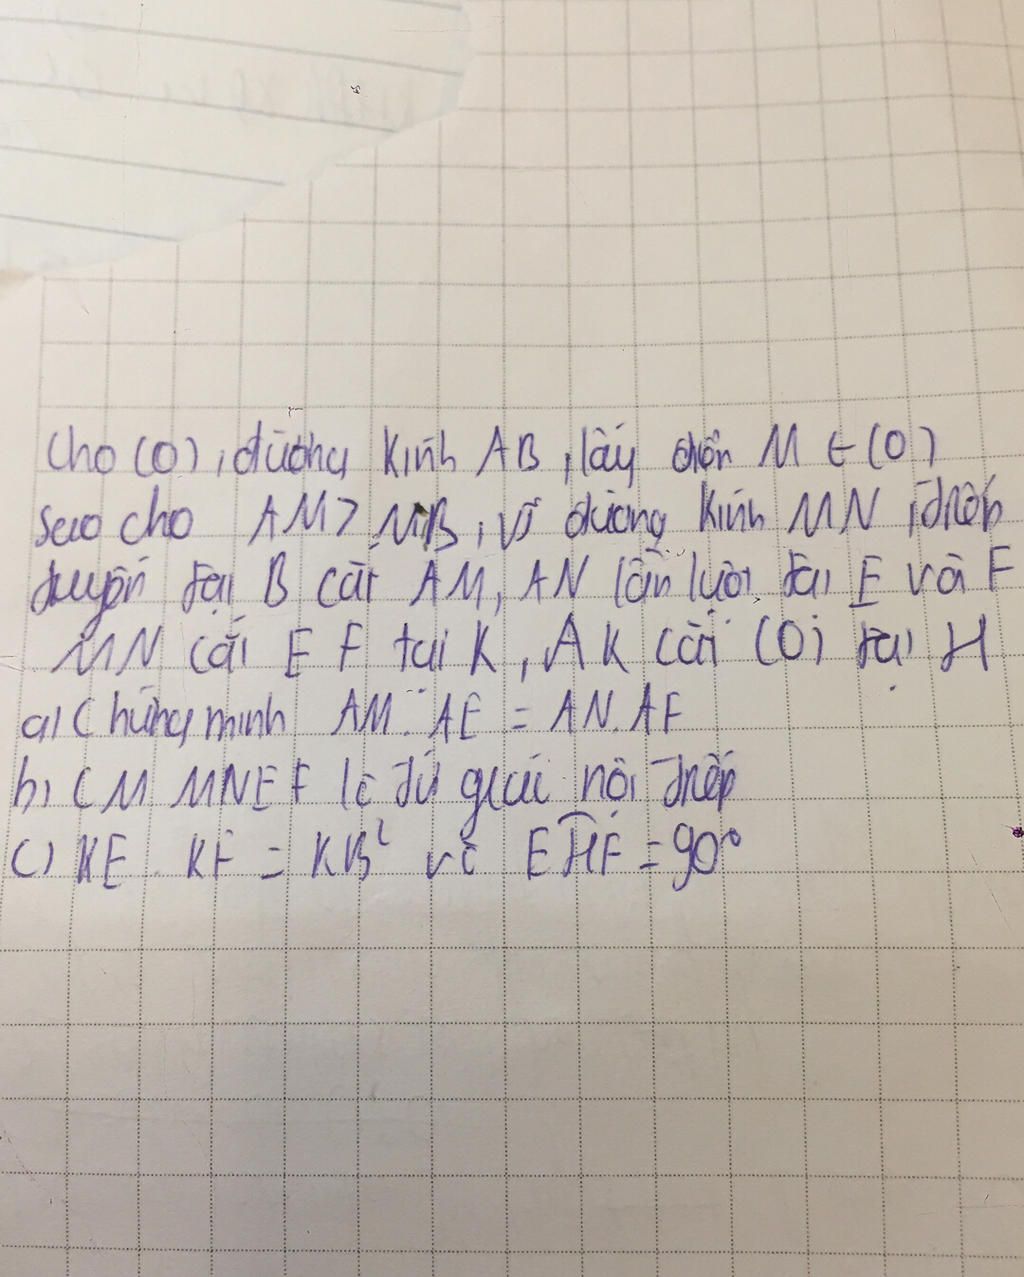 Cho (O), đường kính AB, lấy điểm M ∈ (O)
sao cho AM > MB, vẽ đường kính MN, tiếp
tuyến tại B cắt AM, AN lần lượt tại E và F
MN cắt EF tại K, AK cắt (O) tại H
a) Chứng minh AM. AE = AN. AF
b) CM MNEF là tứ giác nội tiếp
c) KE. KF = KB² và EHF = 90°